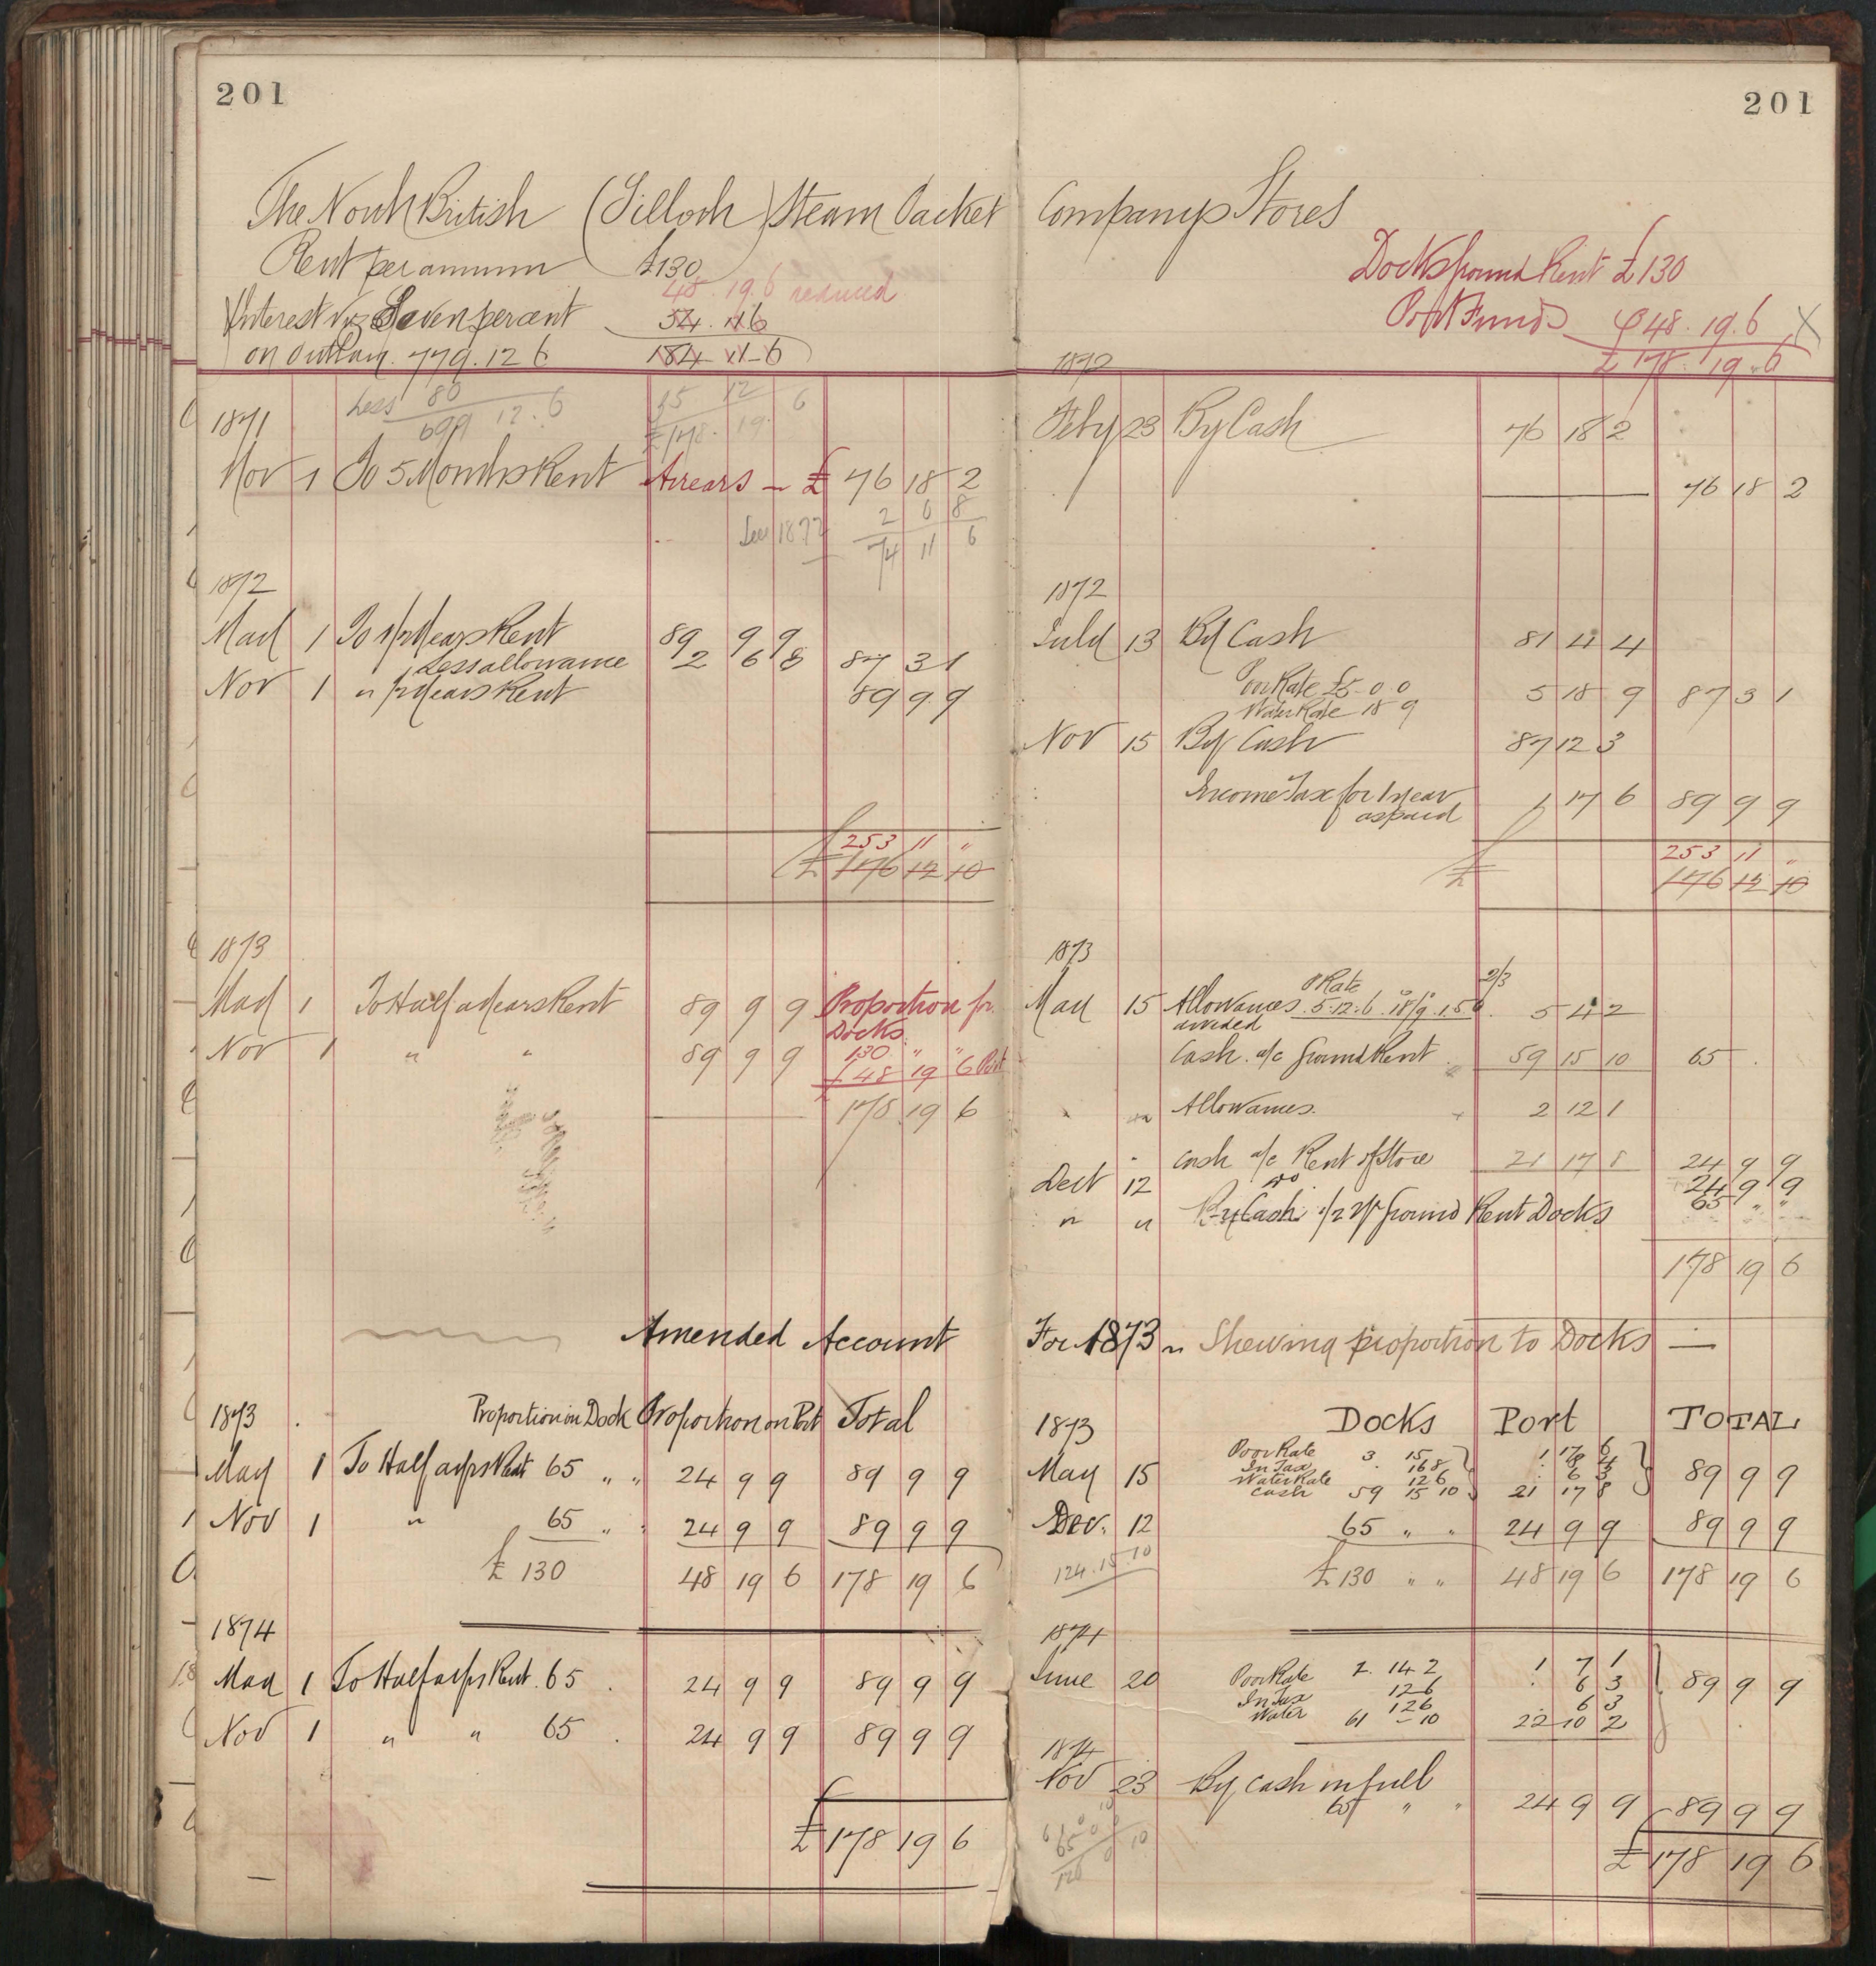 201
The North British (Silloth) Steam Packet
Rent per annum £130
48. 19. 6 reduced
Interest viz Seven percent 54. 11 6
on outlay. 779. 12 6 184 11-6
Less 80 5 12
699 12. 6 £178. 19. 6
1871
Nov 1 To 5 Months Rent Arrears — £ 76 18 2
2 6 8
Dec 1872 74 11 6
1872
May 1 To 1/2 Years Rent 89 9 9
Less allowance 2 6 8 87 3 1
Nov 1 " 1/2 Years Rent 89 9 9
253 11 "
£ 176 12 10
1873
May 1 To Half a Years Rent 89 9 9 Proportion for
Docks
Nov 1 " " 89 9 9 130 " "
£ 48 19 6 Port
178 19 6
Amended Account
1873 Proportion on Dock Proportion on Port Total
May 1 To Half a yrs Rent 65 " " 24 9 9 89 9 9
Nov 1 " 65 " " 24 9 9 89 9 9
£ 130 48 19 6 178 19 6
1874
May 1 To Half a yrs Rent. 65 24 9 9 89 9 9
Nov 1 " " 65 24 9 9 89 9 9
£ 178 19 6
201
Company Stores
Docks Ground Rent £130
Port Funds 48. 19. 6 X
£ 178. 19. 6
1872
Feby 23 By Cash 76 18 2
76 18 2
1872
July 13 By Cash 81 4 4
Poor Rate £5-0.0 5 18 9 87 3 1
Water Rate 18 9
Nov 15 By Cash 87 12 3
Income Tax for 1 year 1 17 6 89 9 9
as paid
253 11 "
£ 176 12 10
1873
P Rate 2/3
May 15 Allowances 5.12.6. 18/9 1.5.0 5 4 2
divided
Cash a/c Ground Rent 59 15 10 65
" " Allowances. 2 12 1
" Cash a/c Rent of Store 21 17 8 24 9 9
Decr 12 do 24 9 9
" " By Cash 1/2 yr Ground Rent Docks 65 " "
178 19 6
For 1873 " Shewing proportion to Docks —
1873 Docks Port TOTAL
Poor Rate 3 15 1 17 6
May 15 In Tax 16 8 8 4 89 9 9
Water Rate 12 6 6 3
Cash 59 15 10 21 17 8
Dec. 12 65 " " 24 9 9 89 9 9
124.15.10 £130 " " 48 19 6 178 19 6
1874
June 20 Poor Rate 2. 14 2 1 7 1 89 9 9
In Tax 12 6 6 3
Water 12 6 6 3
61 – 10 22 10 2
1874
Nov 23 By Cash in full
65 " " 24 9 9 89 9 9
£ 178 19 6